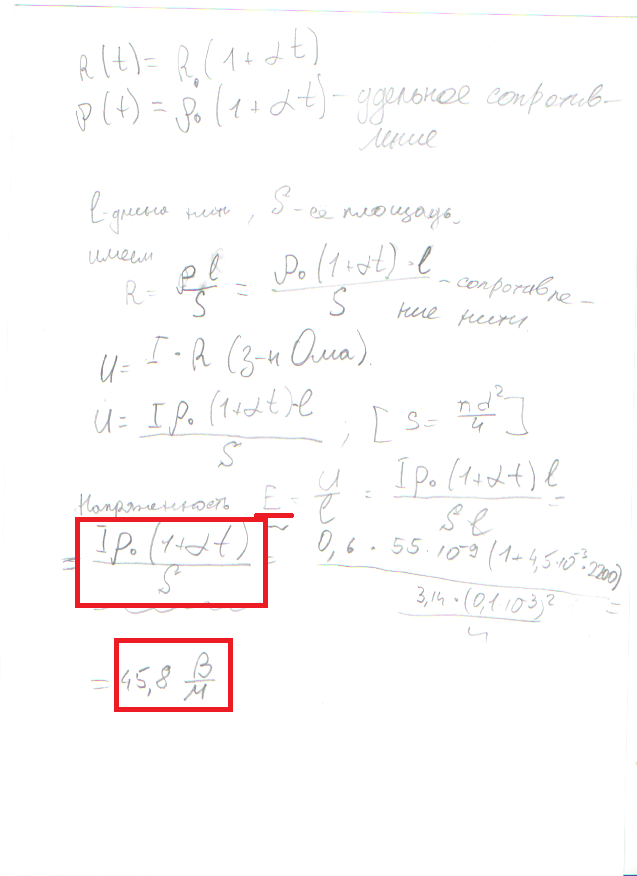 R(t) = R₀(1+αt)
ρ(t) = ρ₀(1+αt) - удельное сопротив-
ление
l-длина нити, S-ее площадь,
имеем
R = ρl/S = ρ₀(1+αt)·l/S - сопротивле-
ние нити
U = I·R (З-н Ома).
U = Iρ₀(1+αt)·l/S ; [S = πd²/4]
Напряженность E = U/l = Iρ₀(1+αt)l/Sl =
= Iρ₀(1+αt)/S = 0,6·55·10⁻⁹(1+4,5·10⁻³·2200)/(3,14·(0,1·10⁻³)²/4) =
= 45,8 В/м